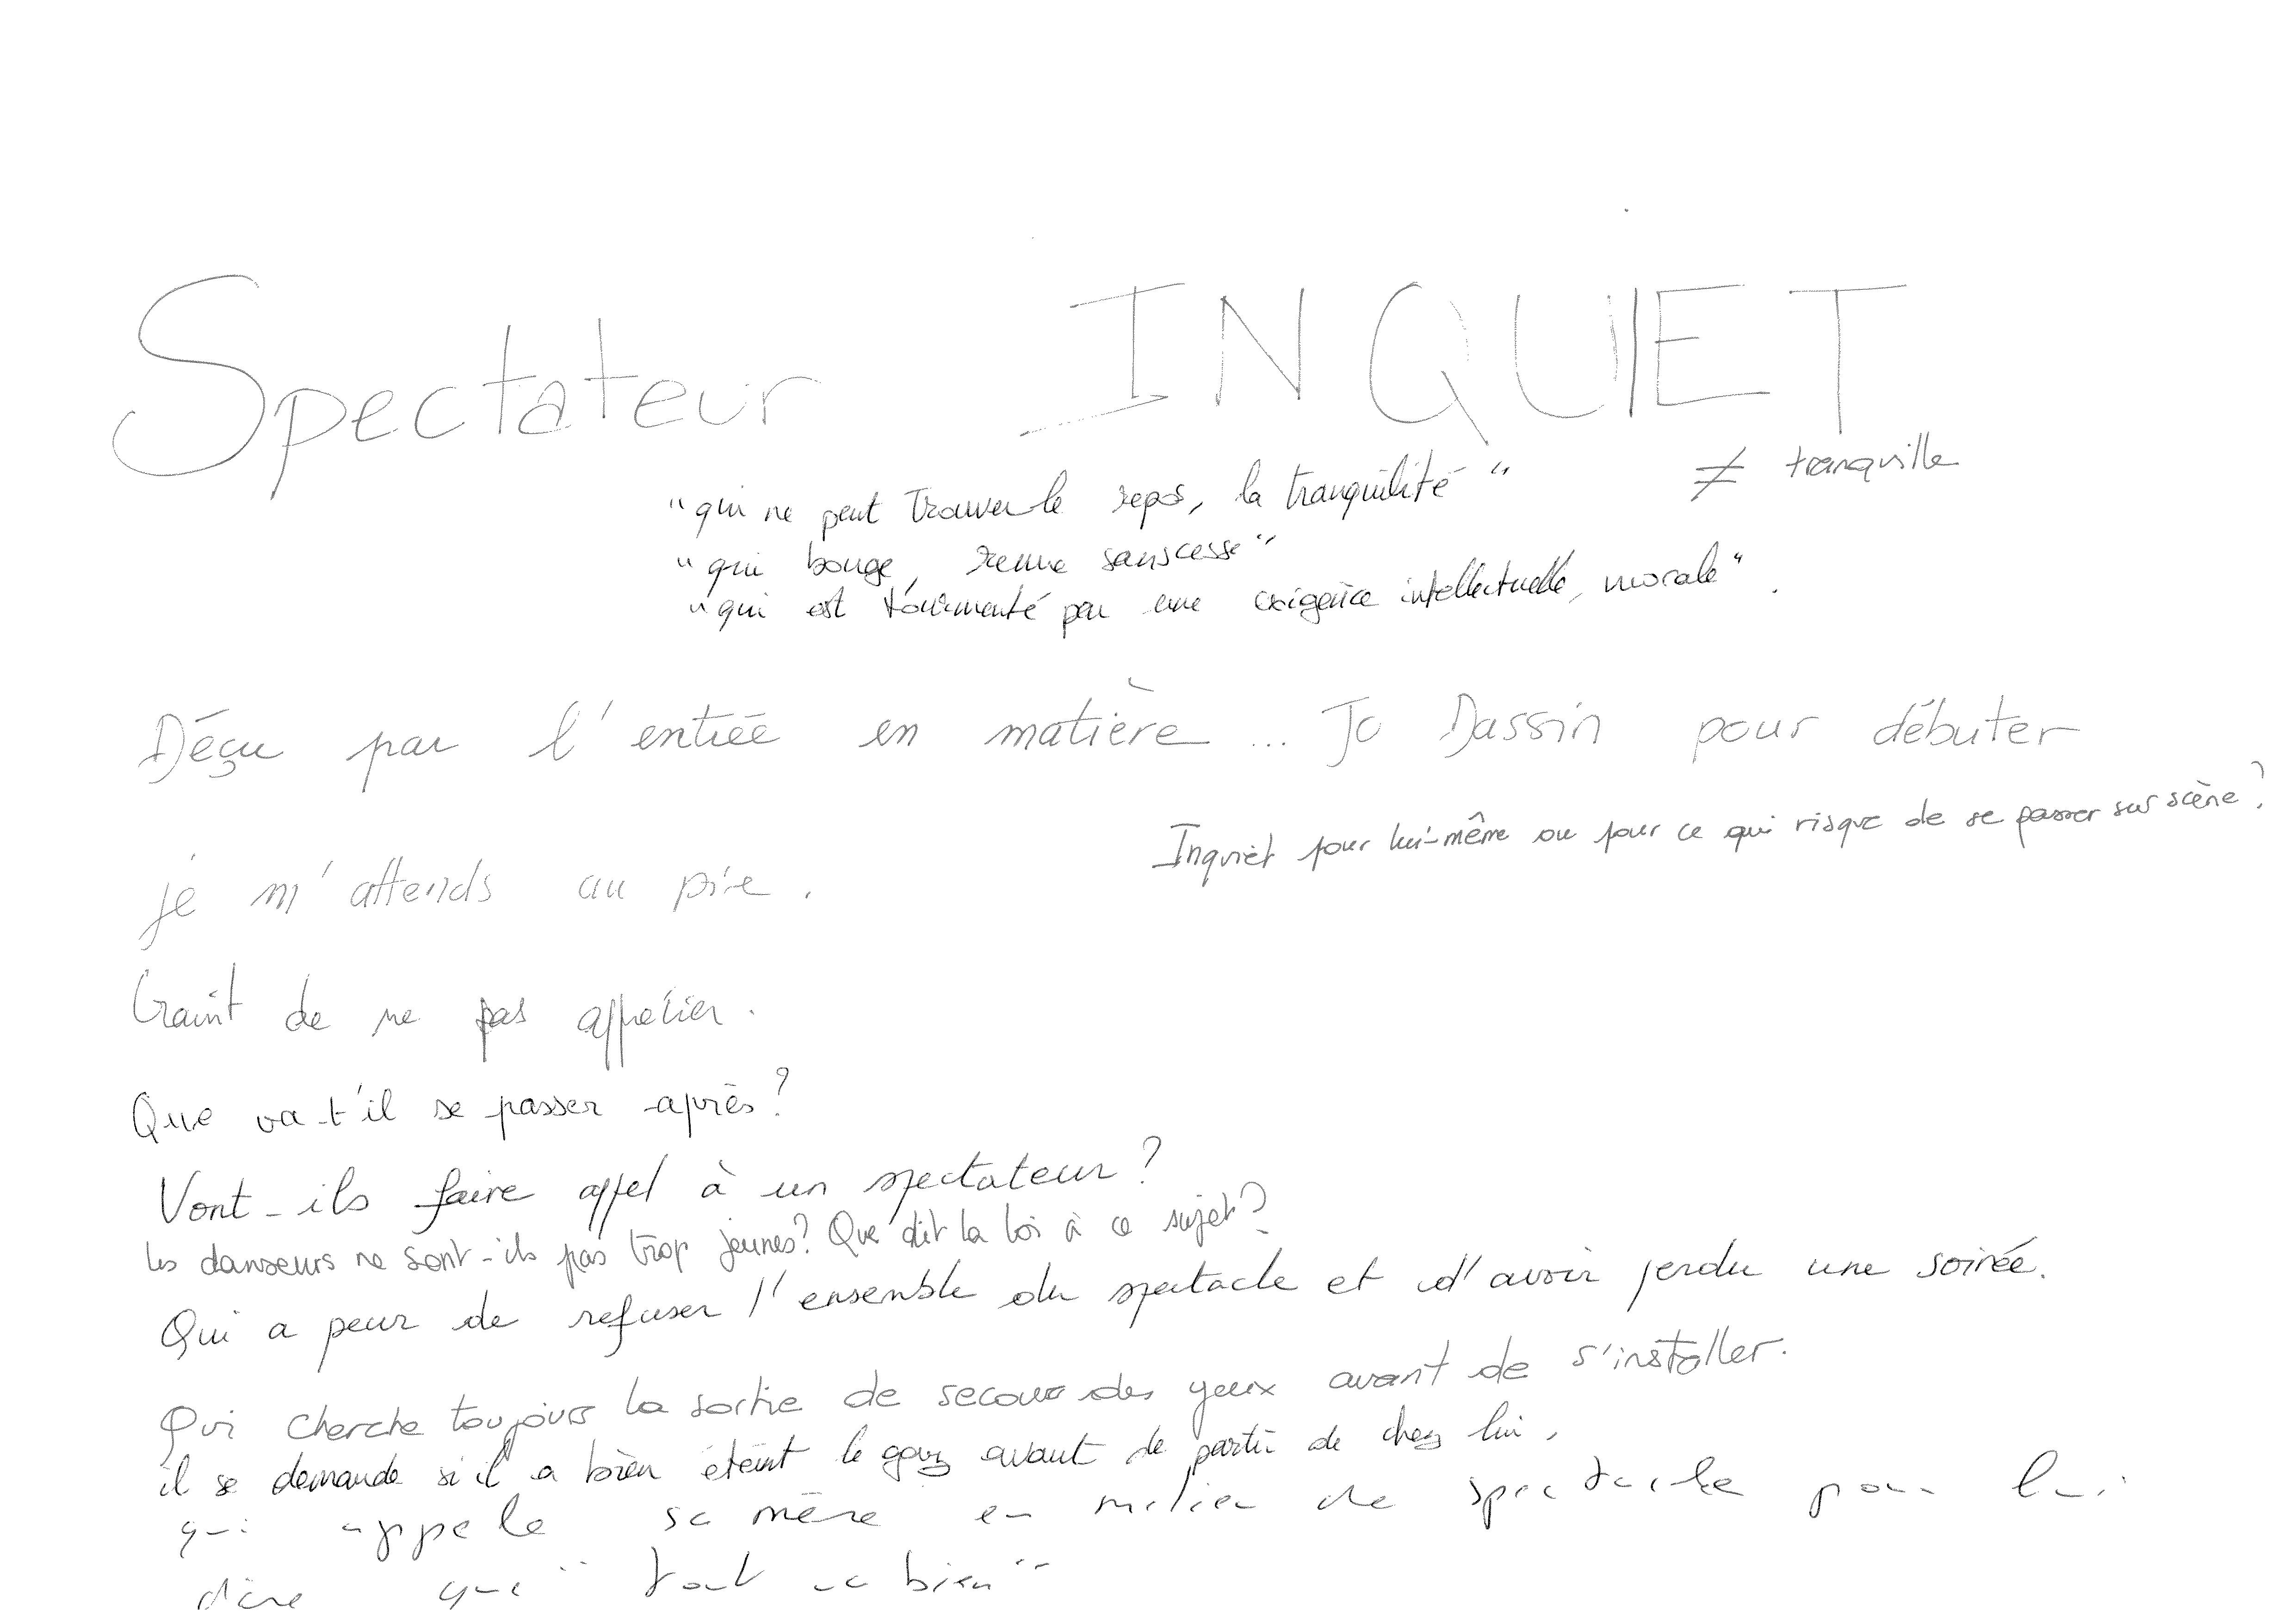 Spectateur INQUIET
"qui ne peut trouver le repos, la tranquilité" ≠ tranquille
"qui bouge, remue sans cesse"
"qui est tourmenté par une exigence intellectuelle, morale".
Déçu par l'entrée en matière ... Jo Dassin pour débuter
Inquiet pour lui-même ou pour ce qui risque de se passer sur scène?
je m'attends au pire.
Craint de ne pas apprécier.
Que va-t'il se passer après?
Vont-ils faire appel à un spectateur?
les danseurs ne sont-ils pas trop jeunes? Que dit la loi à ce sujet?
Qui a peur de refuser l'ensemble du spectacle et d'avoir perdu une soirée.
Qui cherche toujours la sortie de secours des yeux avant de s'installer.
il se demande si il a bien éteint le gaz avant de partir de chez lui,
qui appele sa mère en milieu de spectacle pour lui
dire que "tout va bien"